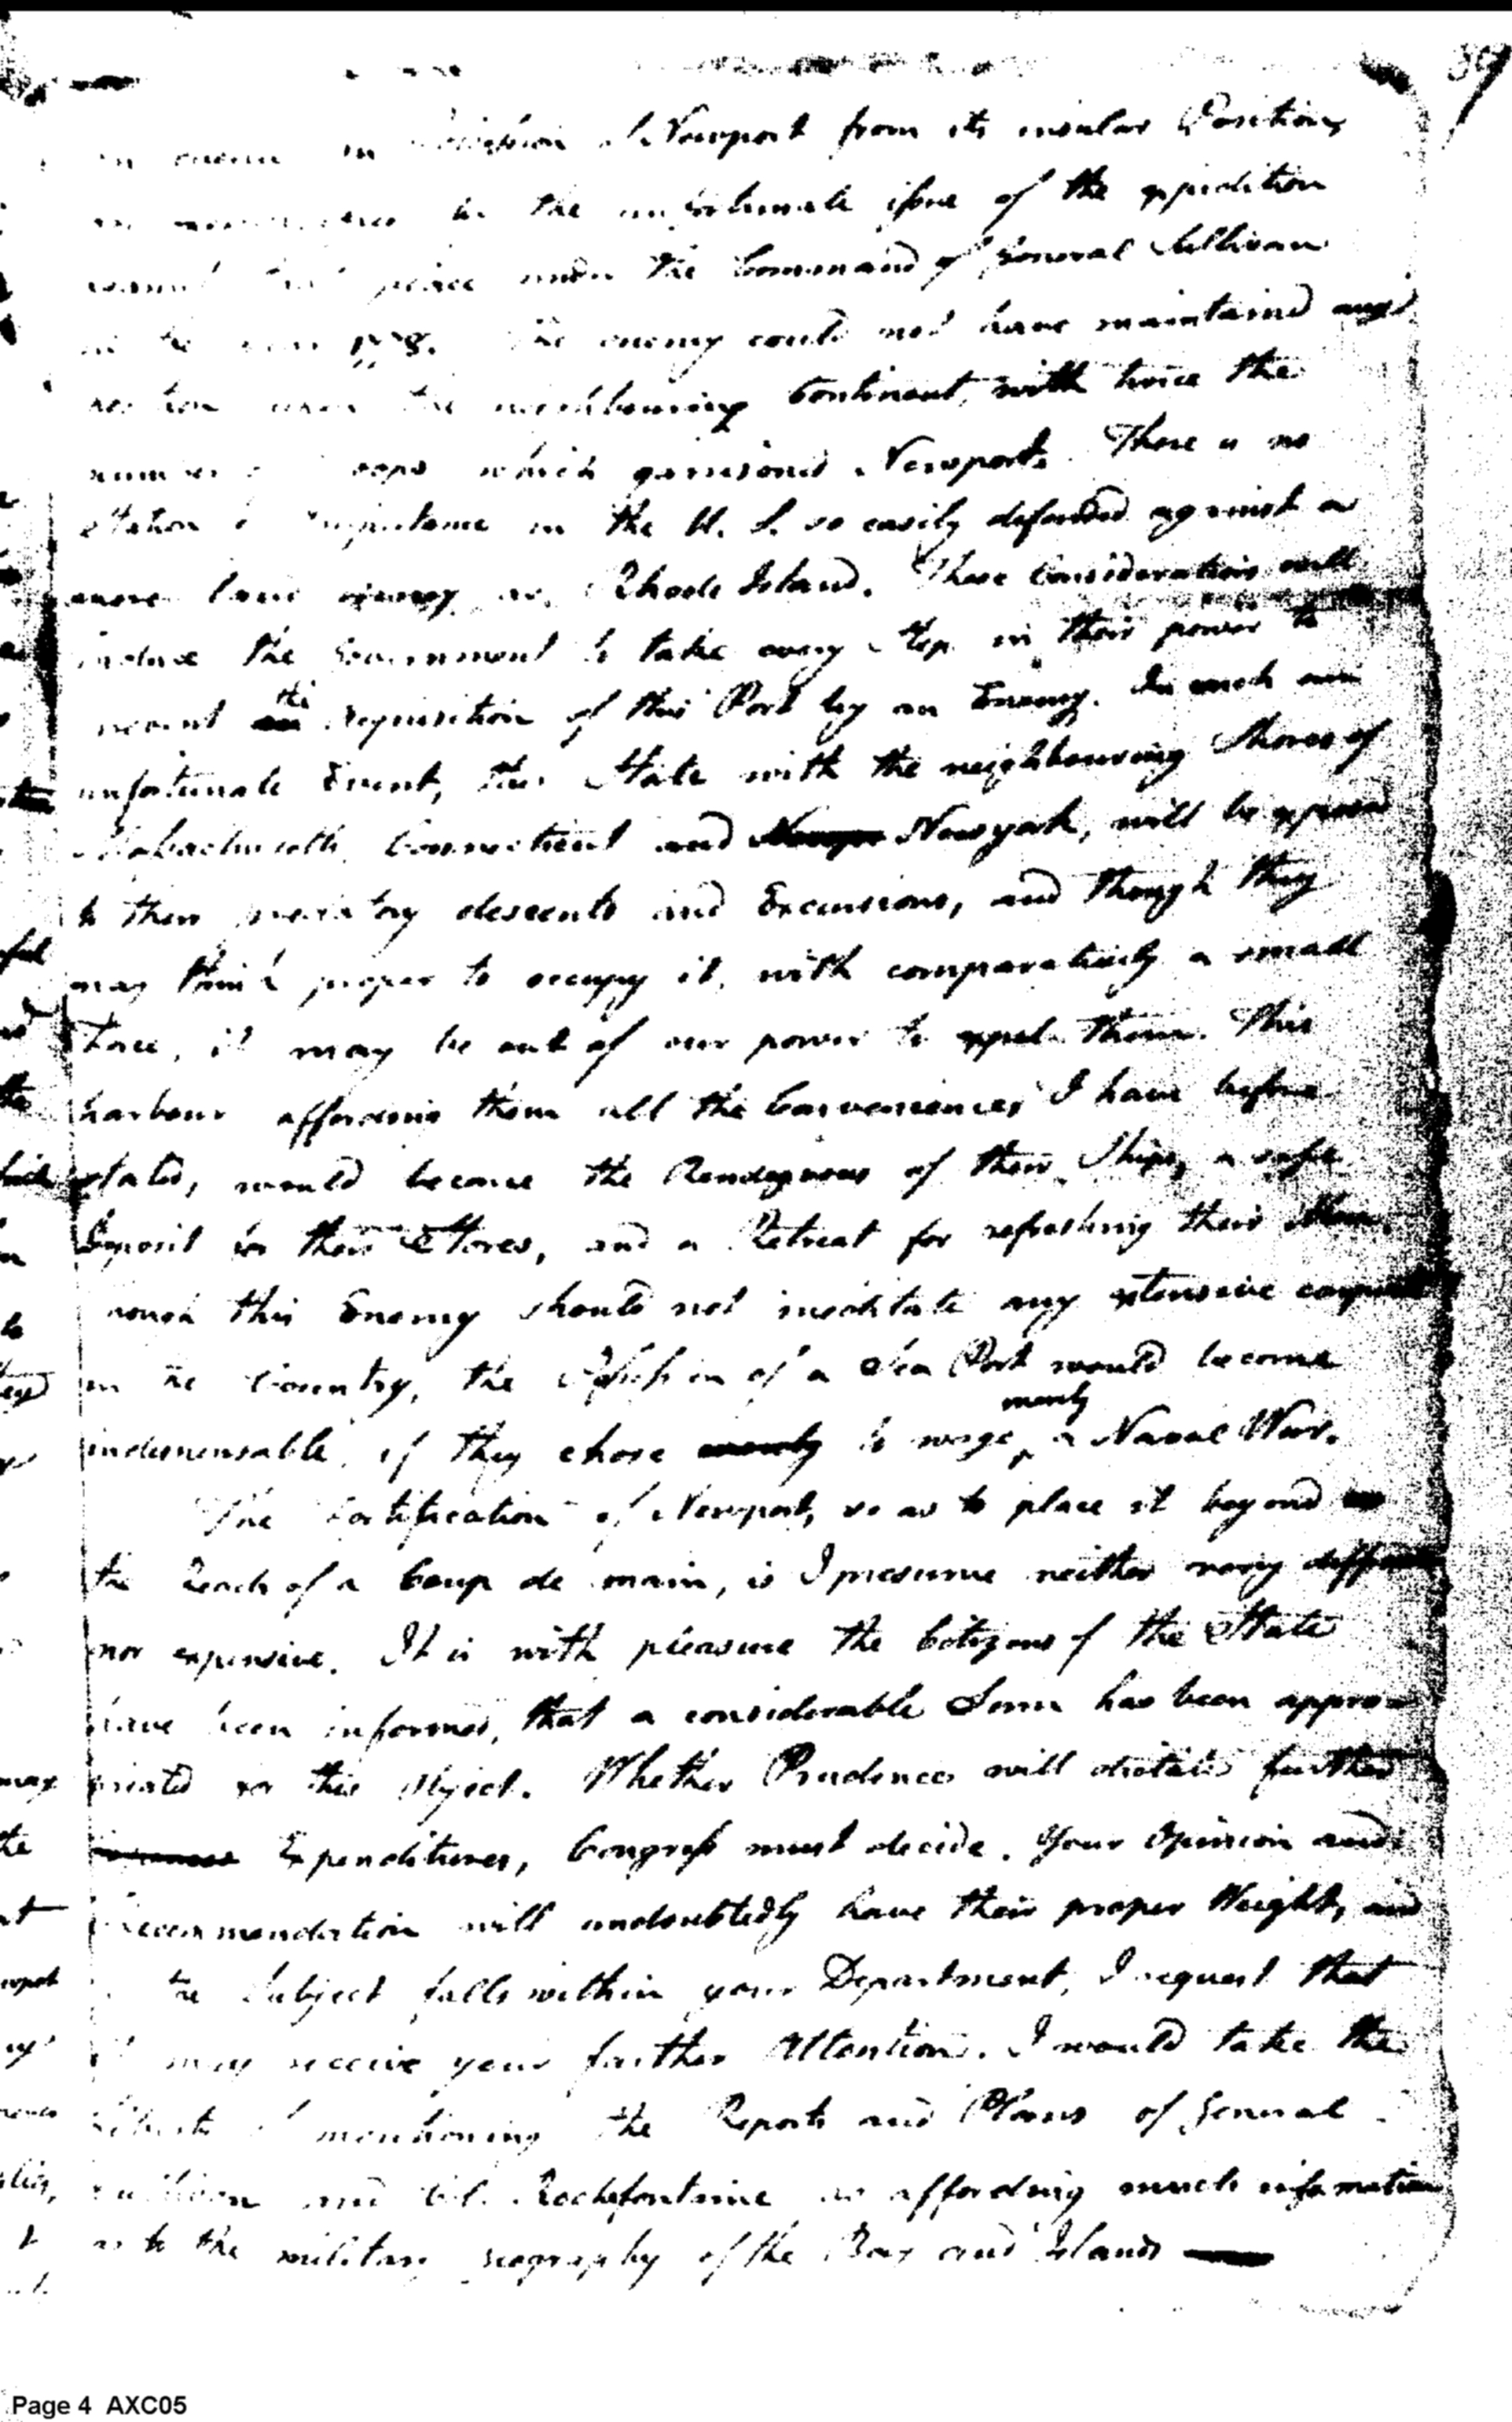 89
in Newport from its insular Position,
the unfortunate issue of the expedition
under the Command of General Sullivan
in the year 1778. The enemy could not have maintained any
upon the neighbouring Continent, with twice the
number which garrisoned Newport. There is no
Station of importance in the U. S. so easily defended against a
more land enemy as Rhode Island. These Considerations will
induce the Government to take every Step in their power to
prevent the Acquisition of this Port by an Enemy. In such an
unfortunate Event, this State with the neighbouring Shores of
Massachusetts, Connecticut and Newyork, will be exposed
to their predatory descents and Excursions, and though they
may think proper to occupy it, with comparatively a small
Force, it may be out of our power to expel them. This
harbour affording them all the Conveniences I have before
stated, would become the Rendezvous of their Ships, a safe
Deposit for their Stores, and a Retreat for refreshing their Men.
Though this Enemy should not meditate any extensive conquests
in the Country, the Possession of a Sea Port would become
merely
indispensable, if they chose merely to wage, a Naval War.
The Fortification of Newport, so as to place it beyond
the Reach of a Coup de main, is I presume neither very difficult
nor expensive. It is with pleasure the Citizens of the State
have been informed, that a considerable Sum has been appro-
priated for this Object. Whether Prudence will dictate further
Expenditures, Congress must decide. Your Opinion and
Recommendation will undoubtedly have their proper Weight, and
the Subject falls within your Department, I request that
it may receive your further Attention. I would take the
Liberty of mentioning the Reports and Plans of General
and Col. Rochefontaine as affording much information
as to the military geography of the Bay and Islands —
Page 4 AXC05